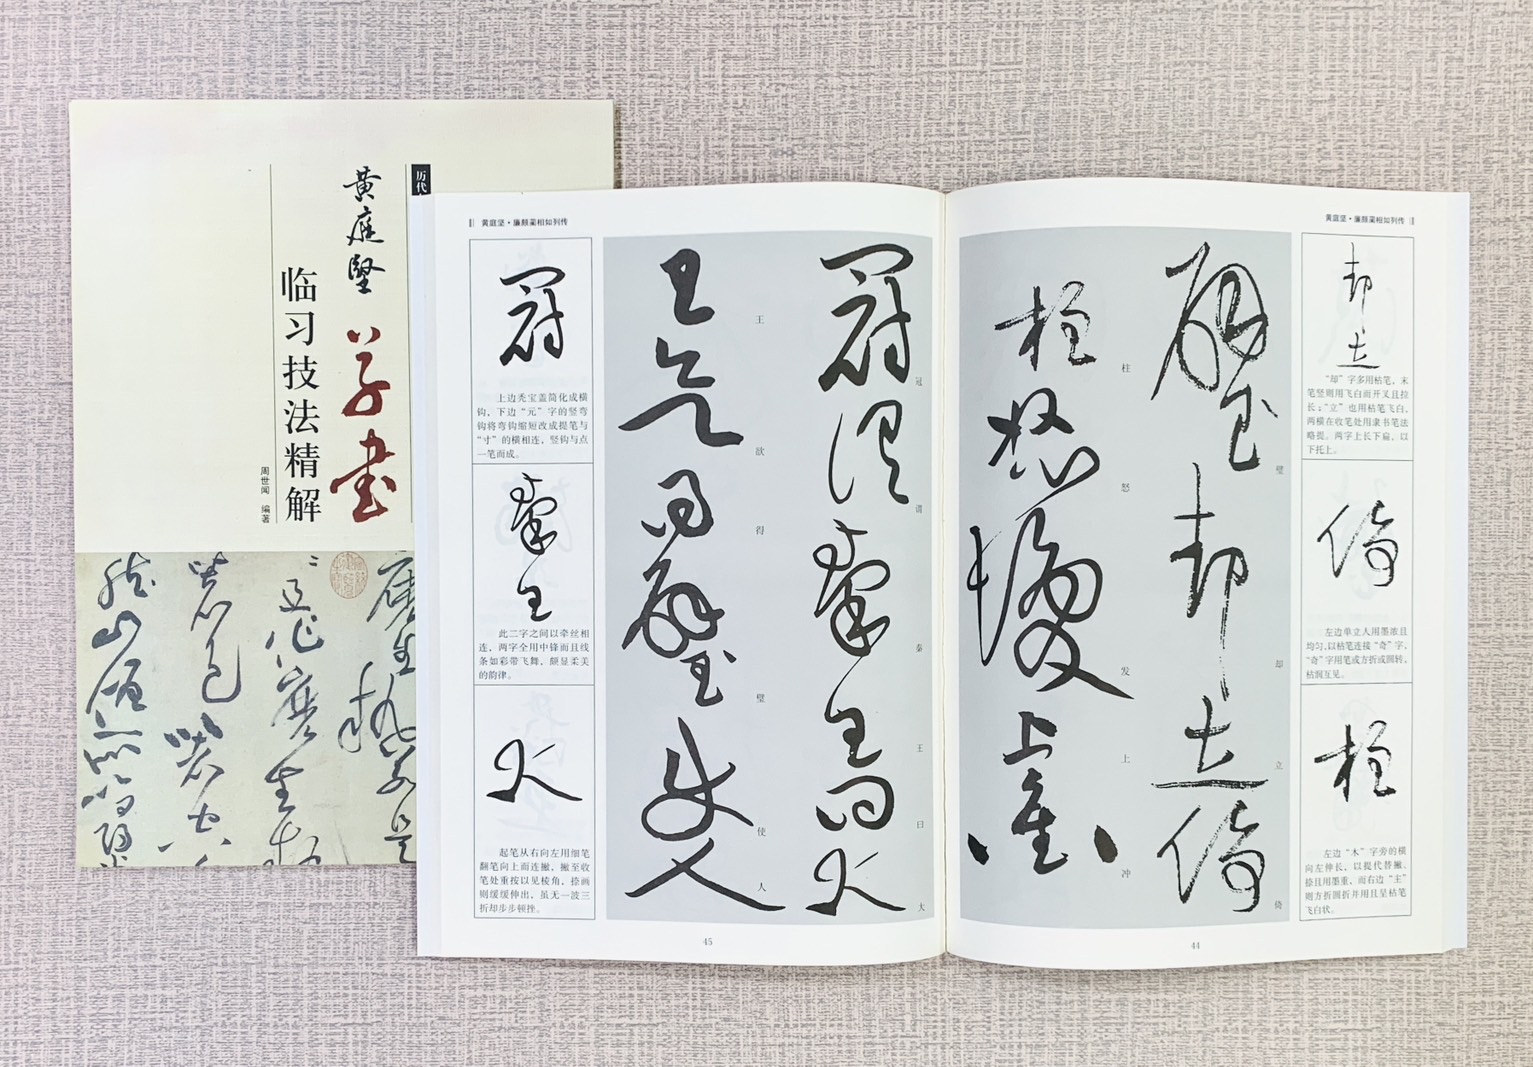 历代
黄庭坚
草书
临习技法精解
周世闻 编著
黄庭坚·廉颇蔺相如列传
却立
“却”字多用枯笔，末
笔竖则用飞白而开叉且拉
长；“立”也用枯笔飞白，
两横在收笔处用隶书笔法
略提。两字上长下扁、以
下托上。
倚
左边单立人用墨浓且
均匀，以枯笔连接“奇”字，
“奇”字用笔或方折或圆转，
枯润互见。
柱
左边“木”字旁的横
向左伸长，以提代替撇、
捺且用墨重，而右边“主”
则方折圆折并用且呈枯笔
飞白状。
璧却立倚
璧
却
立
倚
柱怒发上冲
柱
怒
发
上
冲
44
黄庭坚·廉颇蔺相如列传
冠谓秦王曰大
冠
谓
秦
王
曰
大
王欲得璧使人
王
欲
得
璧
使
人
冠
上边秃宝盖简化成横
钩，下边“元”字的竖弯
钩将弯钩缩短改成提笔与
“寸”的横相连，竖钩与点
一笔而成。
秦王
此二字之间以牵丝相
连，两字全用中锋而且线
条如彩带飞舞，颇显柔美
的韵律。
大
起笔从右向左用细笔
翻笔向上而连撇，撇至收
笔处重按以见棱角，捺画
则缓缓伸出，虽无一波三
折却步步顿挫。
45